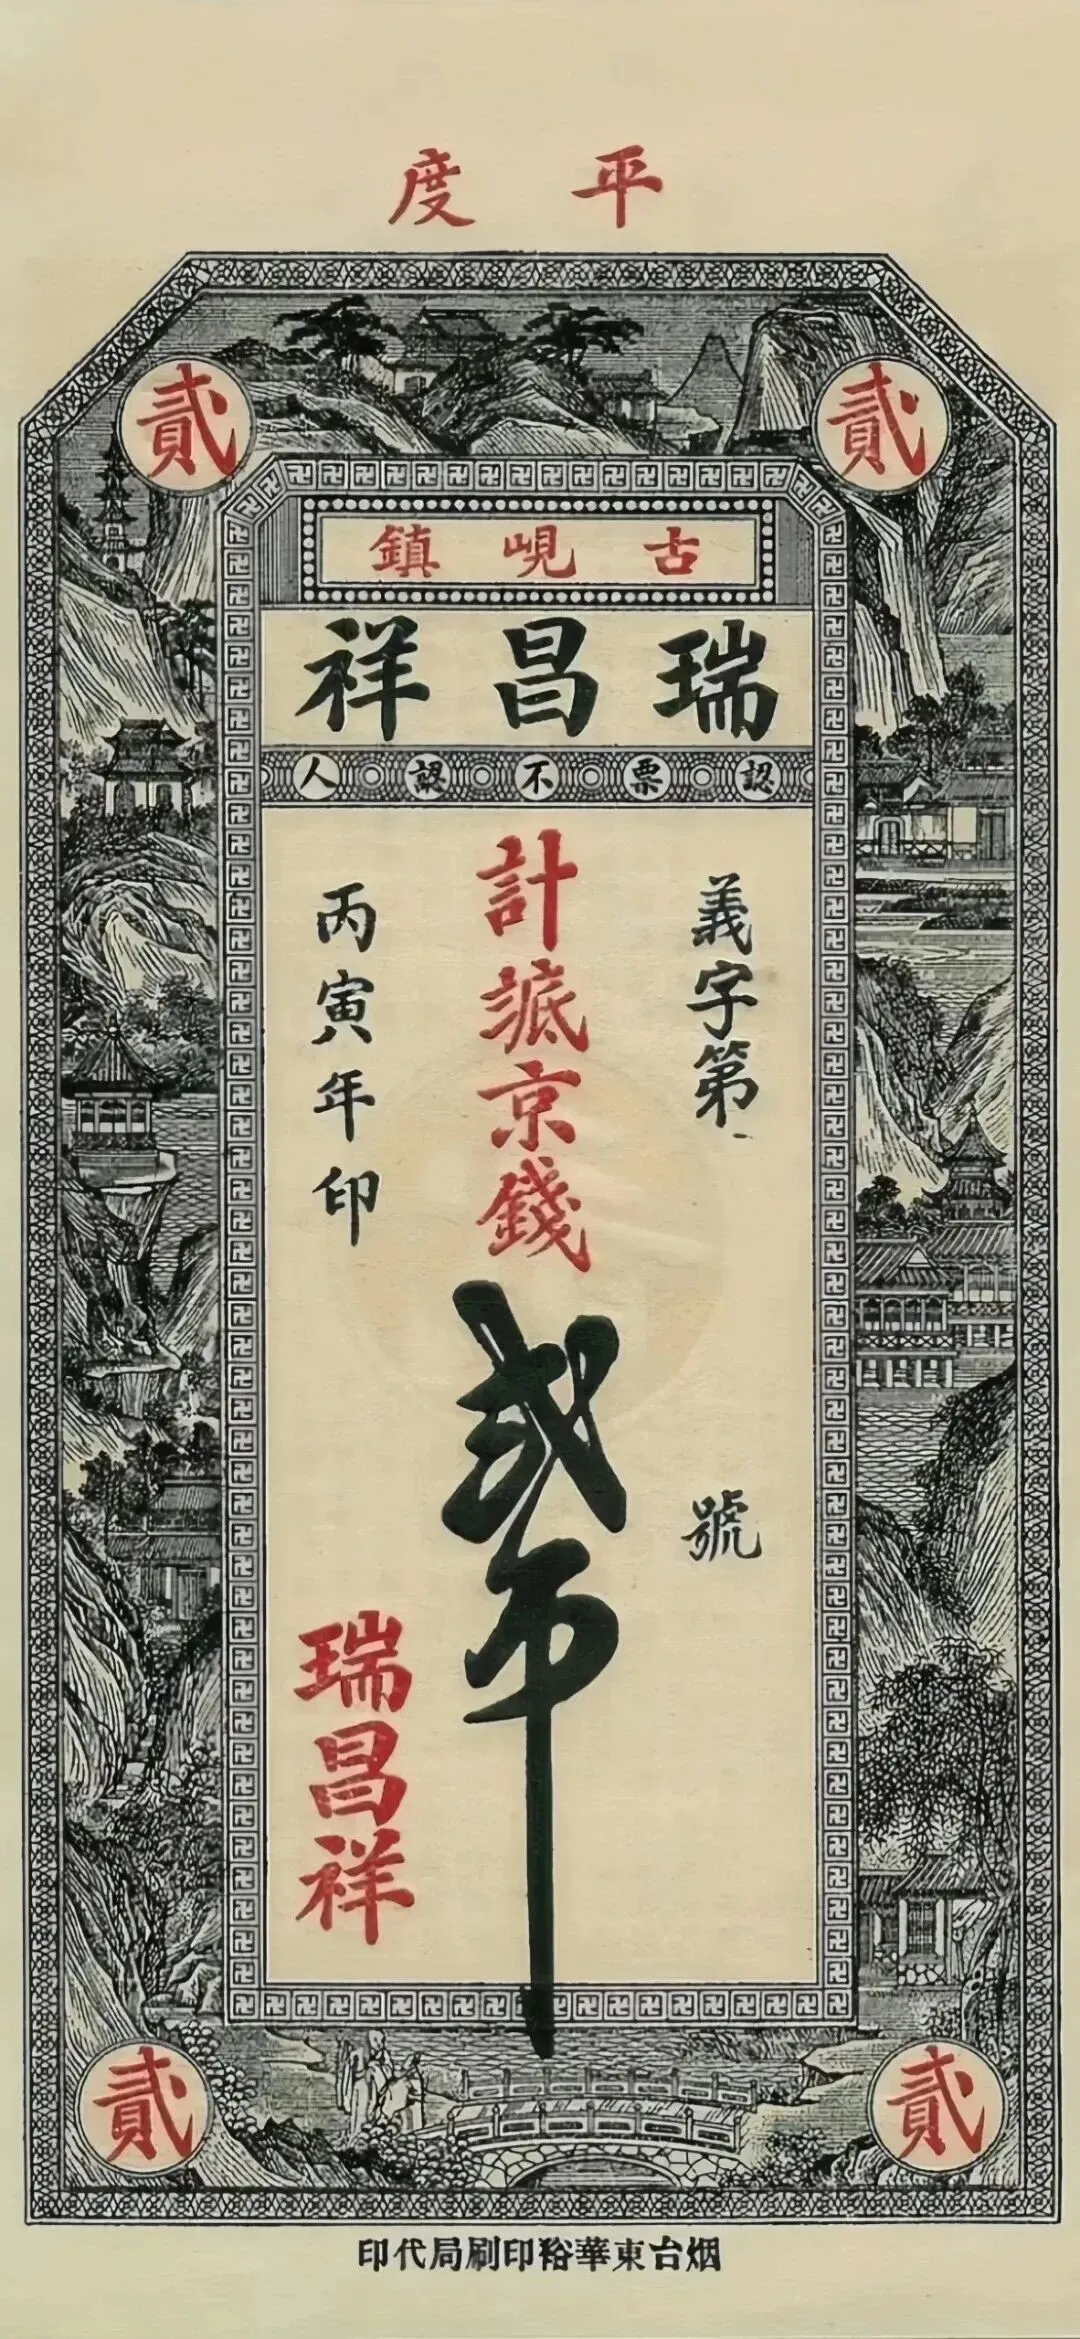 平度
貳 貳
古峴鎮
瑞昌祥
認票不認人
義字第 號
計京錢貳吊
丙寅年印
瑞昌祥
貳 貳
烟台東華裕印刷局代印